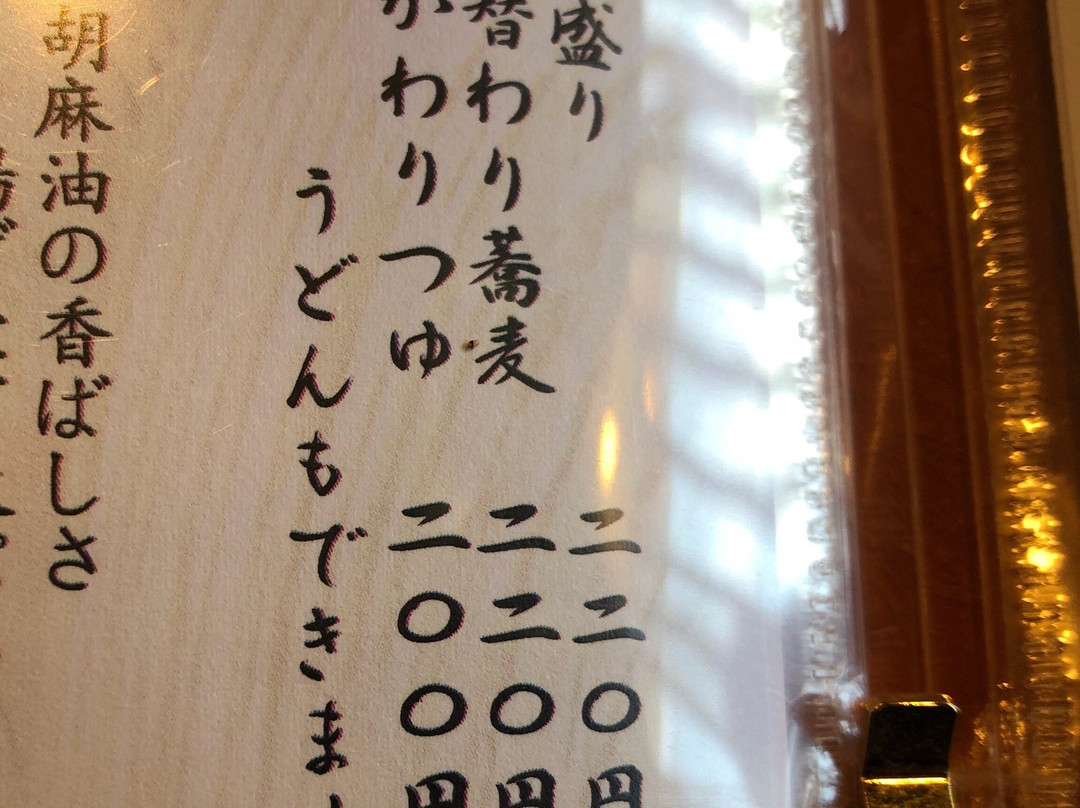 盛り 二二〇円
替わり蕎麦 二二〇円
かわりつゆ 二〇〇円
うどんもできま
胡麻油の香ばしさ